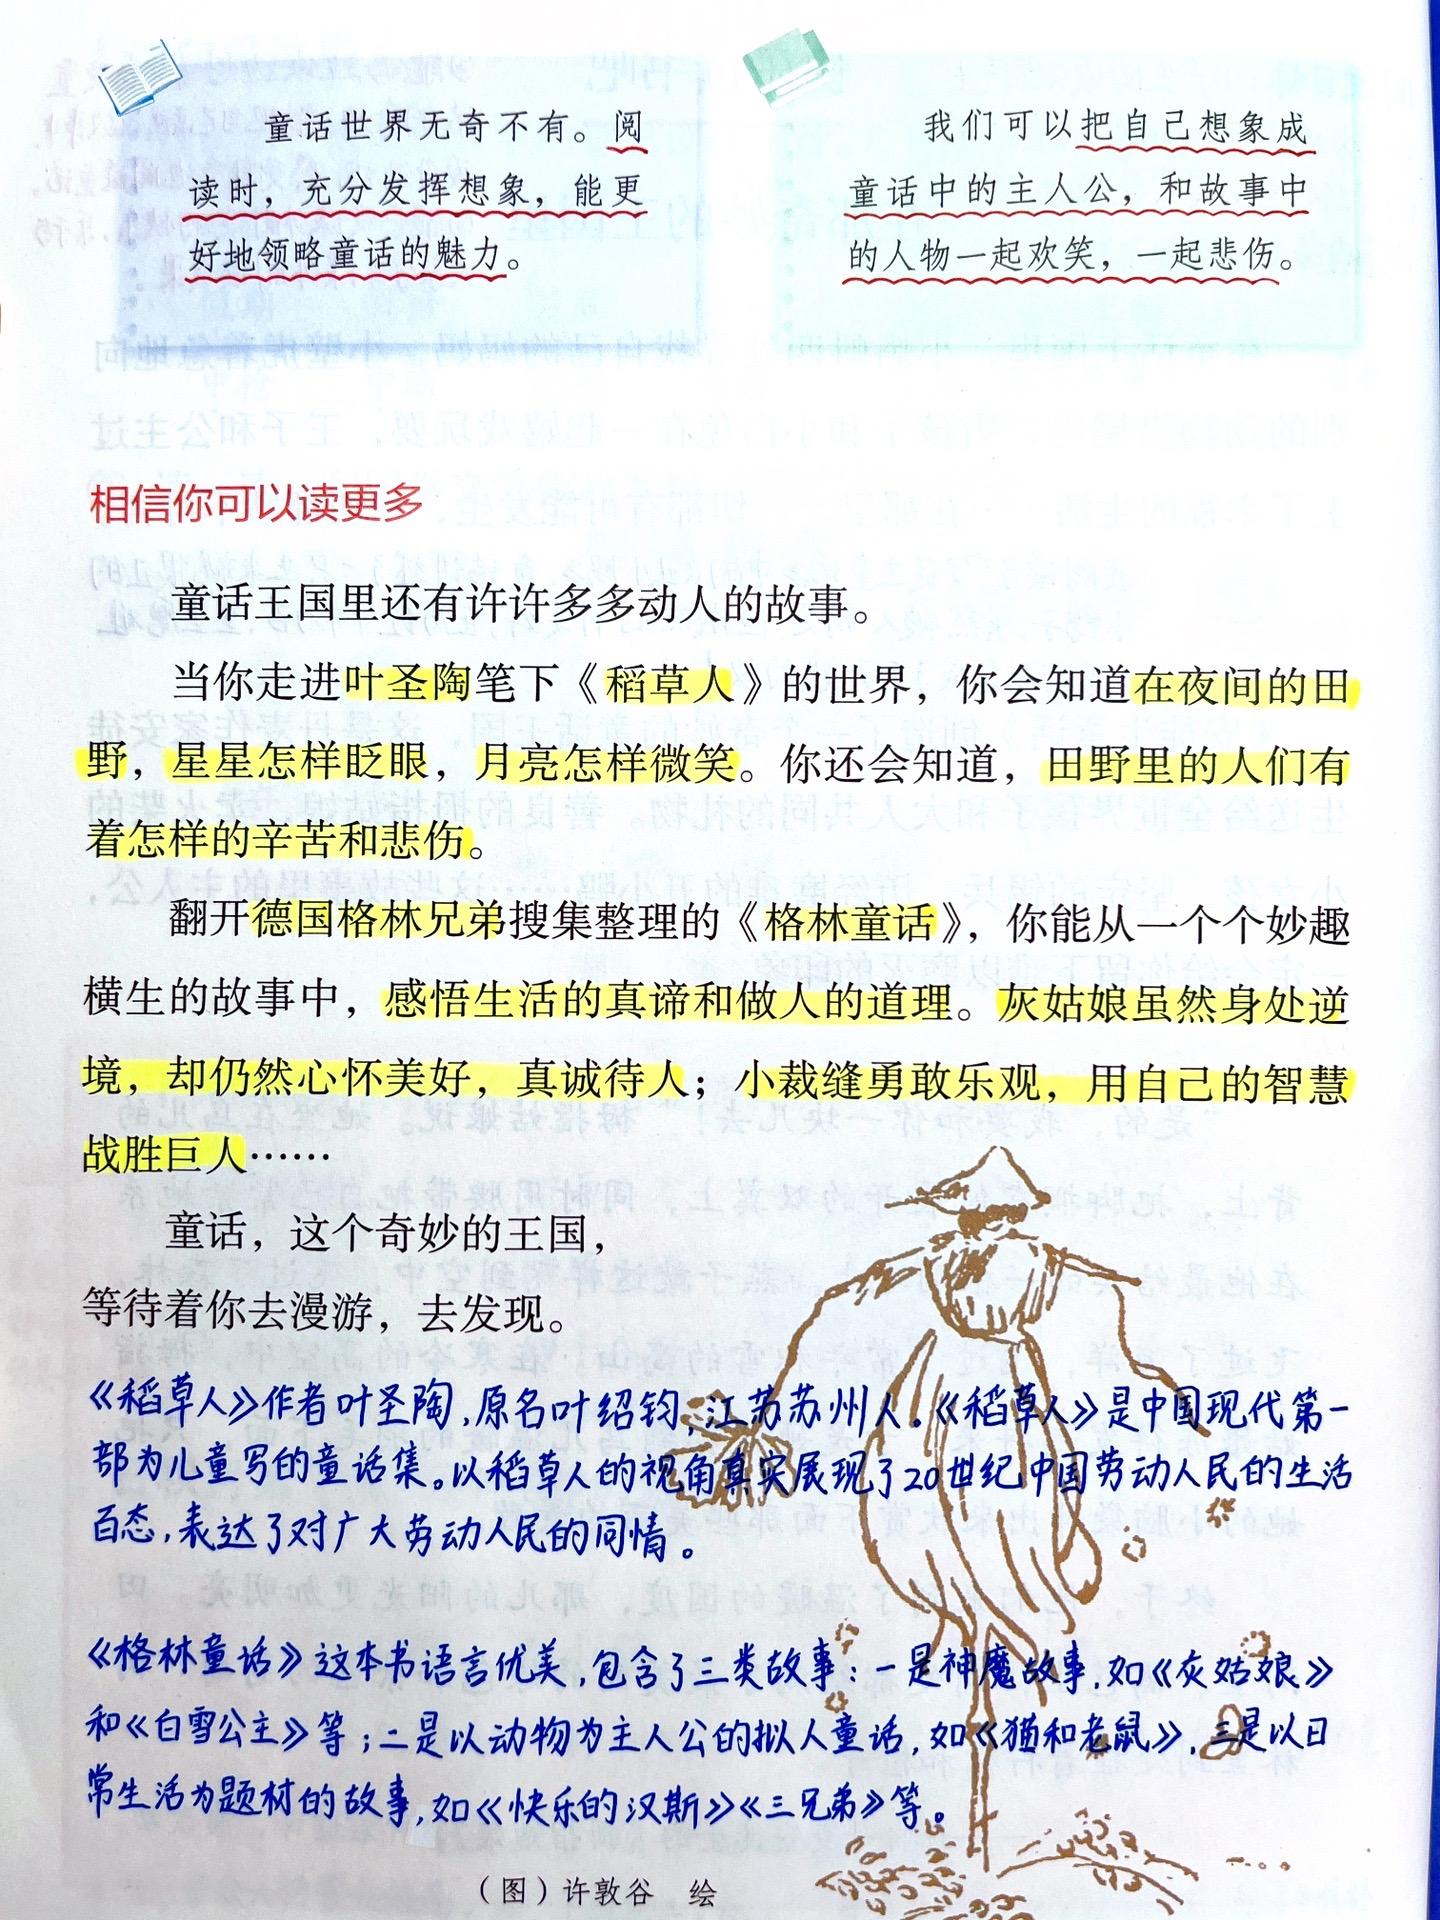 童话世界无奇不有。阅
读时，充分发挥想象，能更
好地领略童话的魅力。
我们可以把自己想象成
童话中的主人公，和故事中
的人物一起欢笑，一起悲伤。
相信你可以读更多
童话王国里还有许许多多动人的故事。
当你走进叶圣陶笔下《稻草人》的世界，你会知道在夜间的田
野，星星怎样眨眼，月亮怎样微笑。你还会知道，田野里的人们有
着怎样的辛苦和悲伤。
翻开德国格林兄弟搜集整理的《格林童话》，你能从一个个妙趣
横生的故事中，感悟生活的真谛和做人的道理。灰姑娘虽然身处逆
境，却仍然心怀美好，真诚待人；小裁缝勇敢乐观，用自己的智慧
战胜巨人……
童话，这个奇妙的王国，
等待着你去漫游，去发现。
《稻草人》作者叶圣陶，原名叶绍钧，江苏苏州人。《稻草人》是中国现代第一
部为儿童写的童话集。以稻草人的视角真实展现了20世纪中国劳动人民的生活
百态，表达了对广大劳动人民的同情。
《格林童话》这本书语言优美，包含了三类故事：一是神魔故事，如《灰姑娘》
和《白雪公主》等；二是以动物为主人公的拟人童话，如《猫和老鼠》，三是以日
常生活为题材的故事，如《快乐的汉斯》《三兄弟》等。
（图）许敦谷 绘